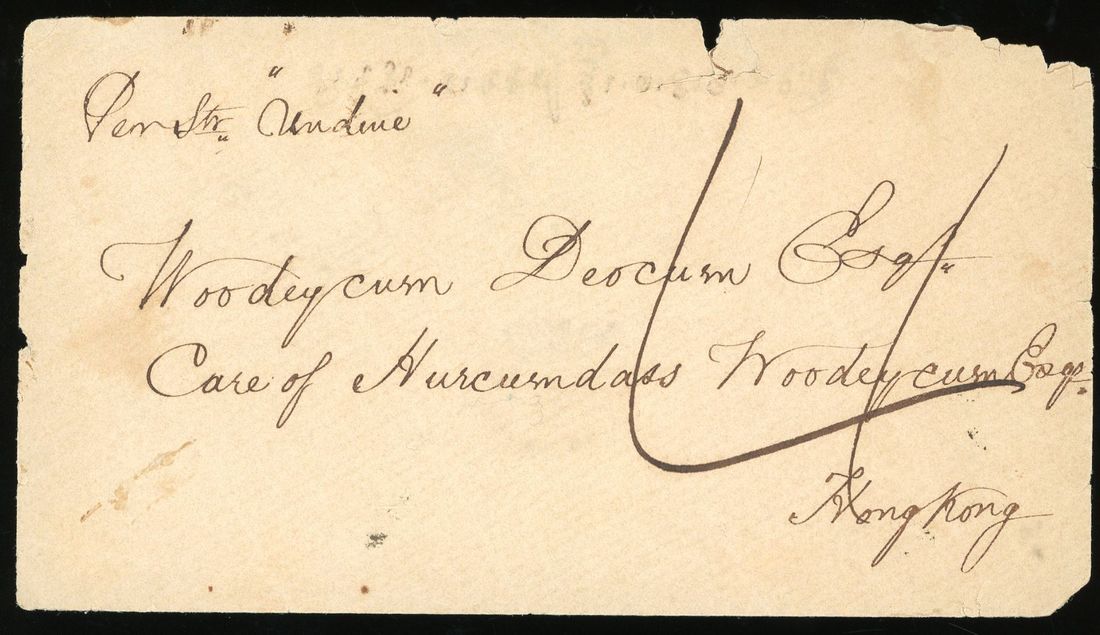 Per Str. "Undine"
Woodeycum Deocum Esqr.
Care of Hurcumdass Woodeycum Esqr.
Hong Kong
4